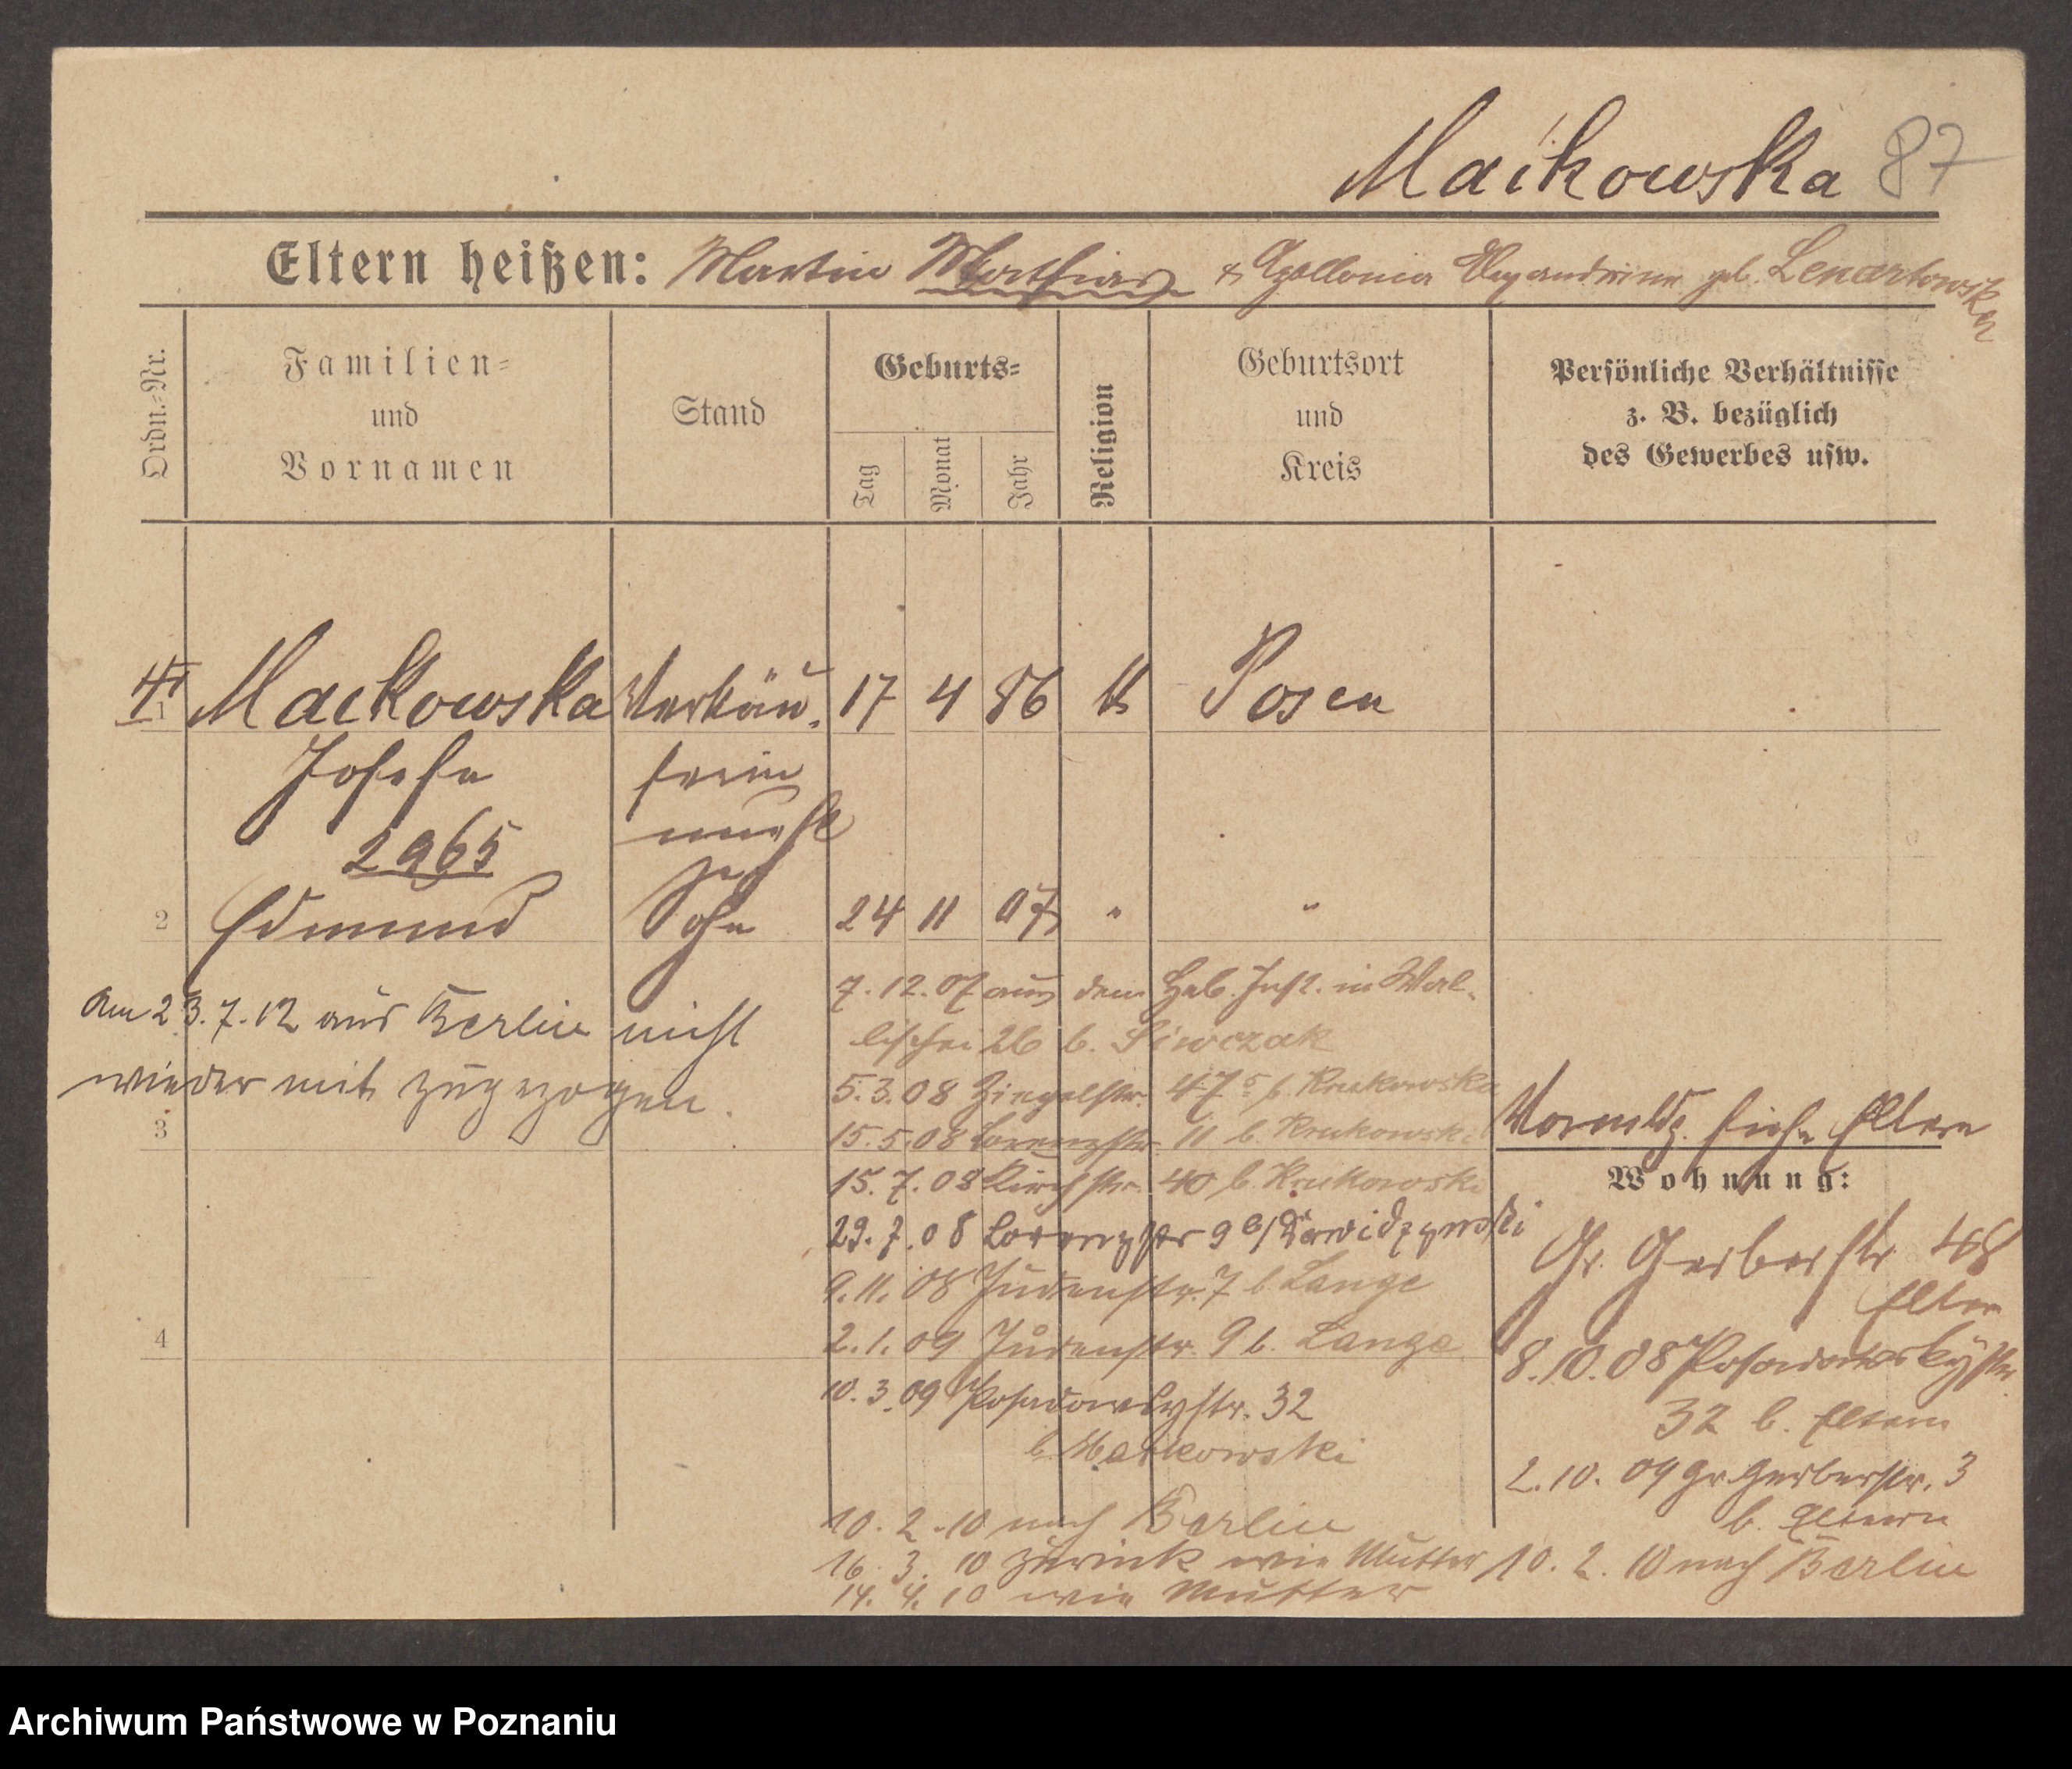 Maćkowska 87
Eltern heißen: Martin Mathias & Apollonia Alexandrine geb. Lenartowska
Ordn.-Nr.
Familien-
und
Vornamen
Stand
Geburts-
Tag
Monat
Jahr
Religion
Geburtsort
und
Kreis
Persönliche Verhältnisse
z. B. bezüglich
des Gewerbes usw.
1 Maćkowska Verkäu- 17 4 86 k Posen
Josefa ferin
2965
2 Edmund Sohn 24 11 07 " "
Am 23.7.12 aus Berlin nicht
wieder mit zugezogen.
7.12.07 aus dem Heb. Inst. in Wal-
lischei 26 b. Siwczak
5.3.08 Ziegelstr. 47 b. Krukowska
15.5.08 Lorenzstr. 11 b. Krukowski
3
15.7.08 Kirchstr. 40 b. Krukowski
29.7.08 Lorenzstr 9 b/ Dawidzynski
9.11.08 Judenstr. 7 b Lange
2.1.09 Judenstr. 9 b. Lange
4
10.3.09 Posadowskystr. 32
b. Maćkowski
10.2.10 nach Berlin
16.3.10 zurück wie Mutter
14.4.10 wie Mutter
siehe Eltern
Wohnung:
Gr. Gerberstr 48
Eltern
8.10.08 Posadowskystr.
32 b. Eltern
2.10.09 Gr. Gerberstr. 3
b. Eltern
10.2.10 nach Berlin
Archiwum Państwowe w Poznaniu